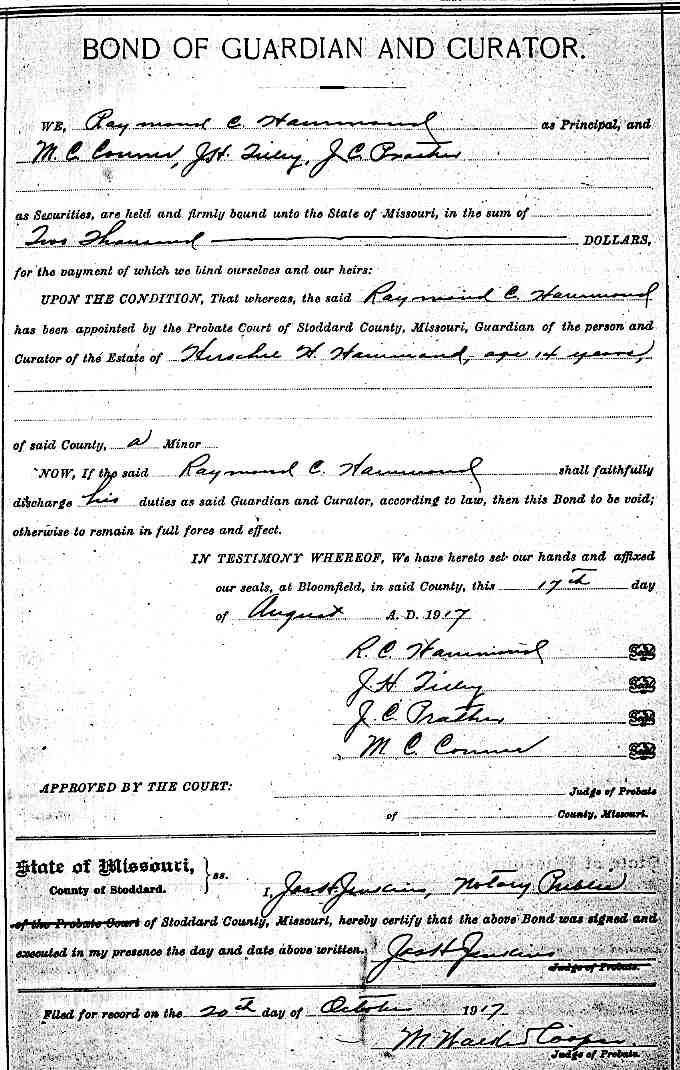 BOND OF GUARDIAN AND CURATOR.
WE, Raymond C. Hammond as Principal, and
M. C. Conner, J. H. Tilley, J. C. Prather
as Securities, are held and firmly bound unto the State of Missouri, in the sum of
Two Thousand DOLLARS,
for the payment of which we bind ourselves and our heirs:
UPON THE CONDITION, That whereas, the said Raymond C. Hammond
has been appointed by the Probate Court of Stoddard County, Missouri, Guardian of the person and
Curator of the Estate of Herschel H. Hammond, age 14 years,
of said County, a Minor
NOW, If the said Raymond C. Hammond shall faithfully
discharge his duties as said Guardian and Curator, according to law, then this Bond to be void;
otherwise to remain in full force and effect.
IN TESTIMONY WHEREOF, We have hereto set our hands and affixed
our seals, at Bloomfield, in said County, this 17th day
of August A. D. 1917
R. C. Hammond Seal
J H Tilley Seal
J. C. Prather Seal
M. C. Conner Seal
APPROVED BY THE COURT: Judge of Probate
of County, Missouri.
State of Missouri,
County of Stoddard. } ss.
I, Jas H Jenkins, Notary Public
of the Probate Court of Stoddard County, Missouri, hereby certify that the above Bond was signed and
executed in my presence the day and date above written. Jas H Jenkins
Judge of Probate.
Filed for record on the 20th day of October 1917
M Cooper
Judge of Probate.